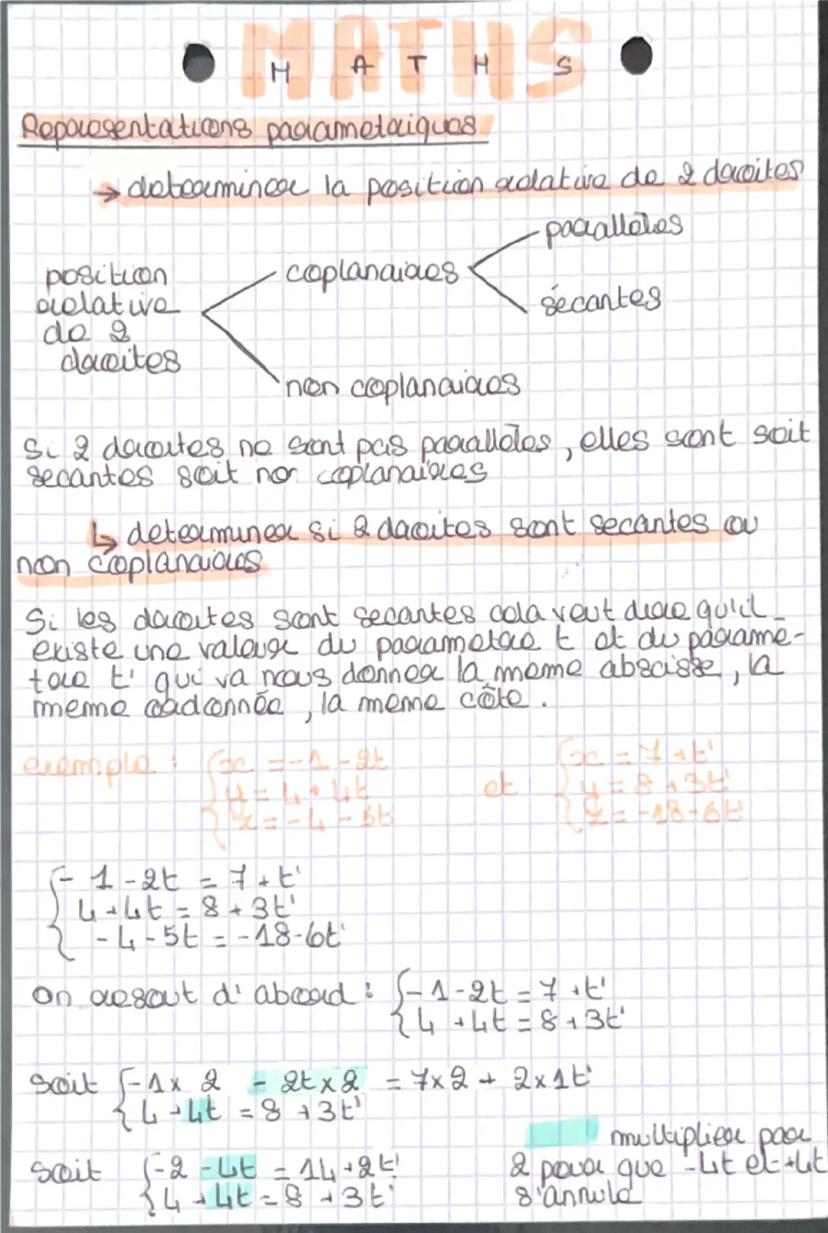 MATHS
M A T H S
Representations parametriques
→ determiner la position relative de 2 droites
position relative de 2 droites
coplanaires
paralleles
sécantes
non coplanaires
Si 2 droites ne sont pas paralleles, elles sont soit
secantes soit non coplanaires
↳ determiner si 2 droites sont secantes ou
non coplanaires
Si les droites sont secantes cela veut dire qu'il
existe une valeur du parametre t et du parame-
tre t' qui va nous donner la meme abscisse, la
meme ordonnée, la meme côte.
exemple : { x = -1 - 2t et { x = 7 + t'
y = 4 + 4t y = 8 + 3t'
z = -4 - 5t z = -18 - 6t'
{ - 1 - 2t = 7 + t'
4 + 4t = 8 + 3t'
- 4 - 5t = -18 - 6t'
On resout d'abord : { -1 - 2t = 7 + t'
4 + 4t = 8 + 3t'
soit { -1 x 2 - 2t x 2 = 7 x 2 + 2 x 1t'
4 + 4t = 8 + 3t'
multiplier par
2 pour que -4t et +4t
s'annule
soit { -2 - 4t = 14 + 2t'
4 + 4t = 8 + 3t'